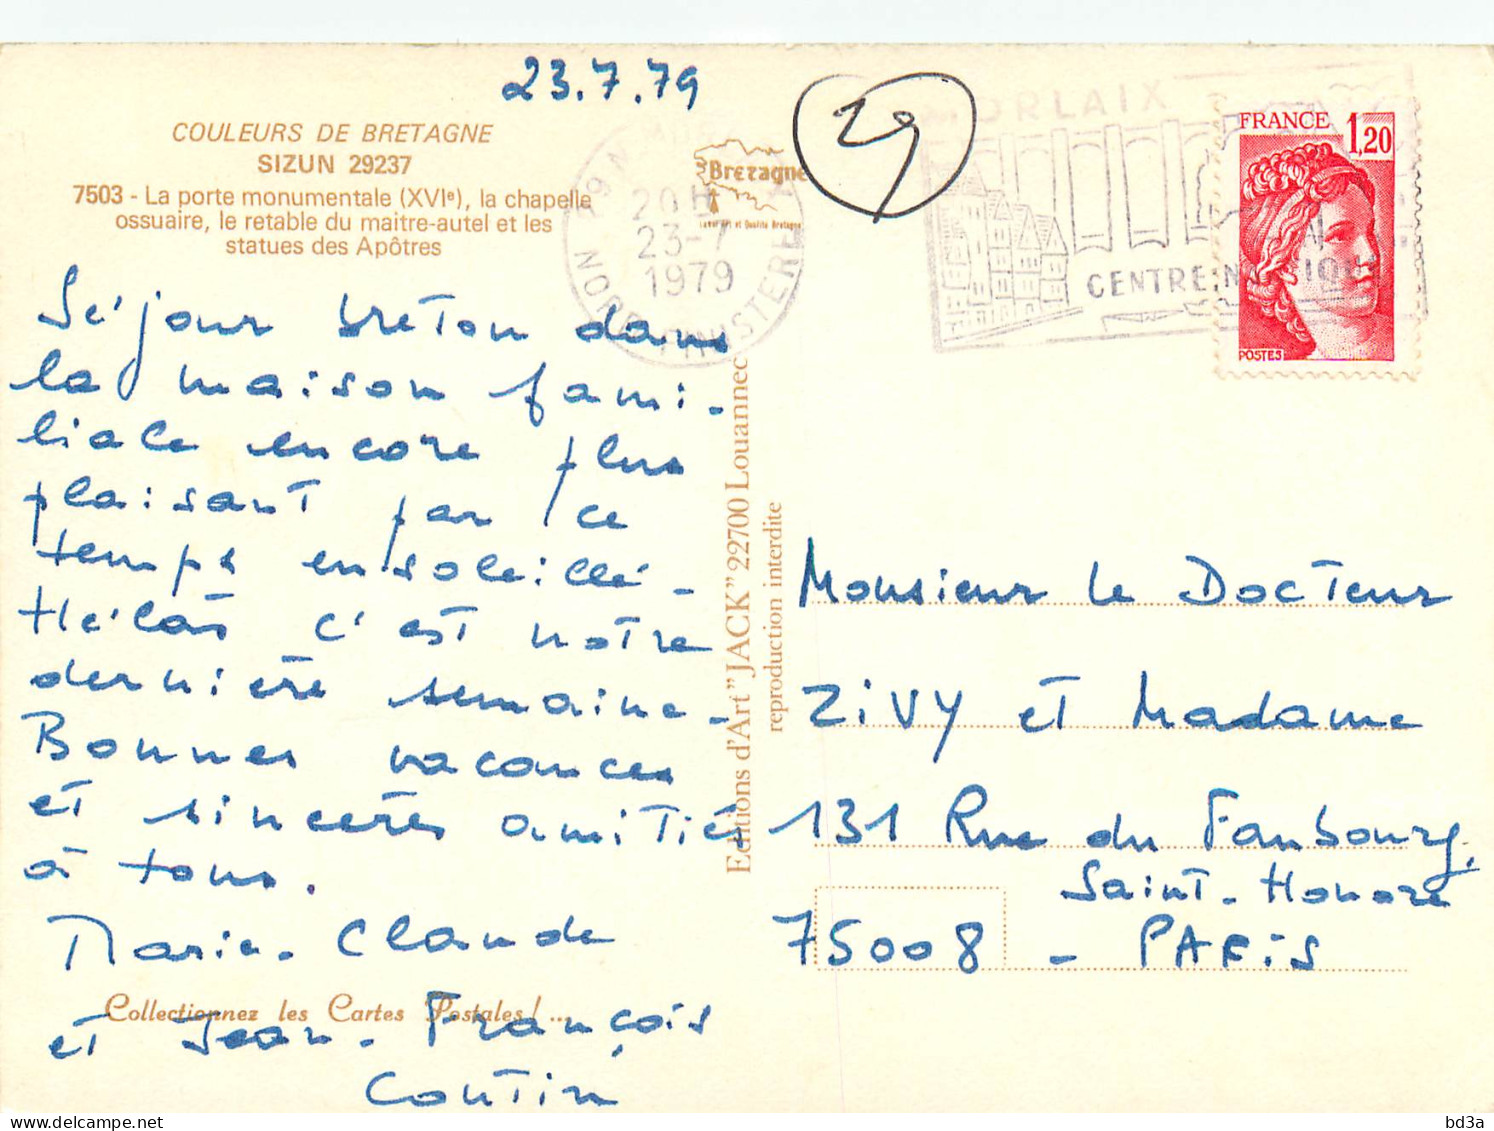 23.7.79
COULEURS DE BRETAGNE
SIZUN 29237
7503 - La porte monumentale (XVIe), la chapelle
ossuaire, le retable du maitre-autel et les
statues des Apôtres
Bretagne
Label Art et Qualité Bretagne
29
20H
23-7
1979
NORD FINISTERE
MORLAIX
CENTRE
FRANCE 1,20
POSTES
Séjour breton dans
la maison fami-
liale encore plus
plaisant par ce
temps ensoleillé-
Hélas c'est notre
dernière semaine-
Bonnes vacances
et sincères amitiés
à tous.
Marie-Claude
et Jean-François
Contin
Collectionnez les Cartes Postales !...
Editions d'Art "JACK" 22700 Louannec
reproduction interdite
Monsieur le Docteur
ZiVY et Madame
131 Rue du Faubourg
Saint-Honoré
75008 - PARiS
bd3a